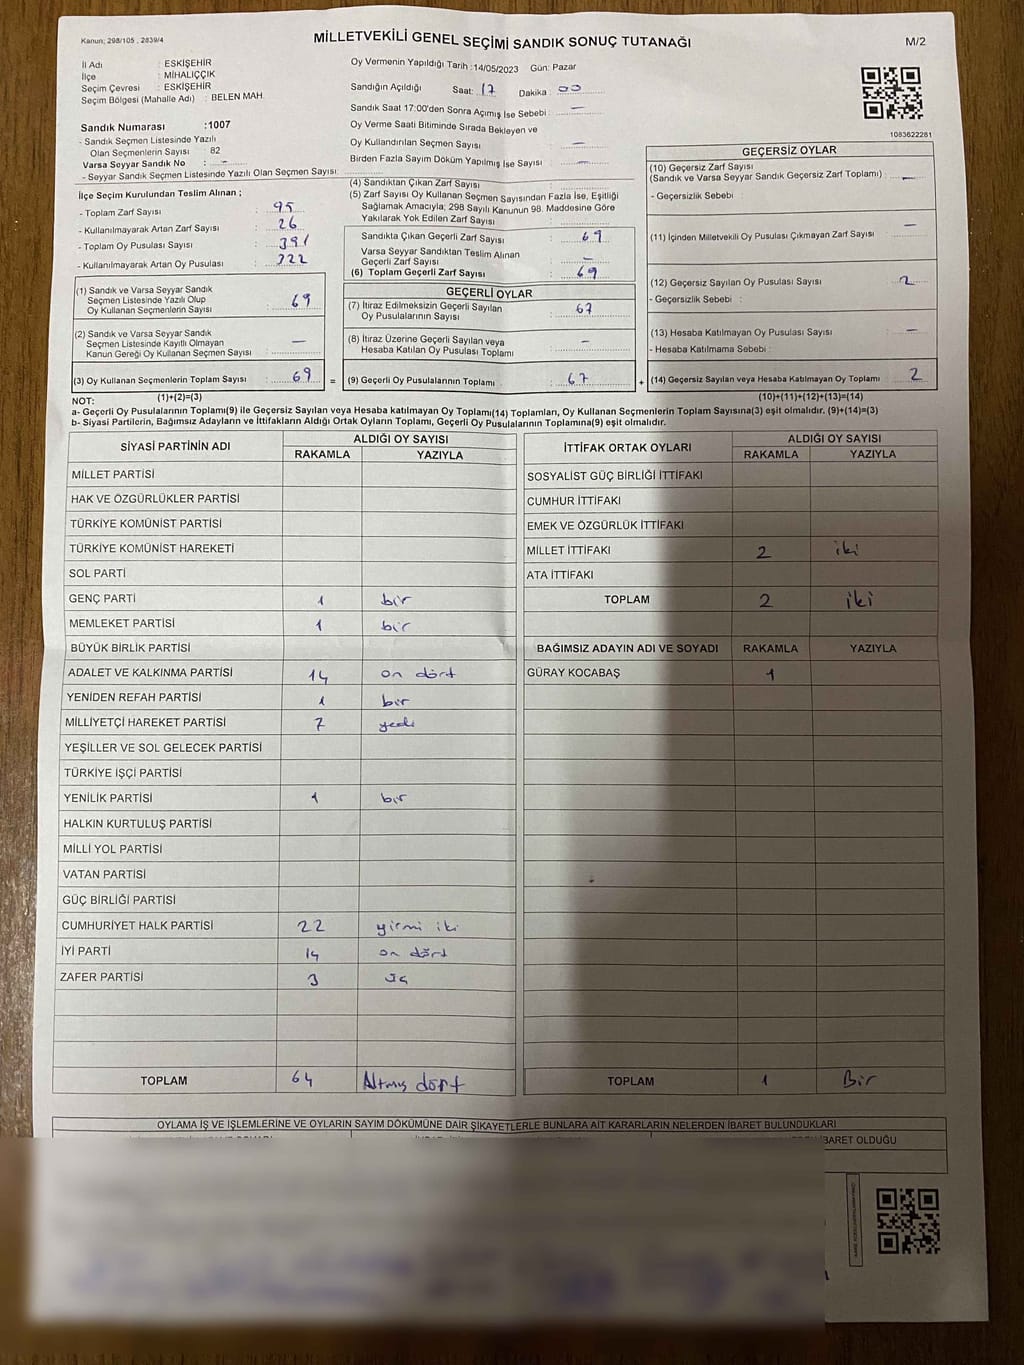 Kanun: 298/105 , 2839/4
MİLLETVEKİLİ GENEL SEÇİMİ SANDIK SONUÇ TUTANAĞI
M/2
İl Adı : ESKİŞEHİR
İlçe : MİHALIÇÇIK
Seçim Çevresi : ESKİŞEHİR
Seçim Bölgesi (Mahalle Adı) : BELEN MAH.
Sandık Numarası :1007
- Sandık Seçmen Listesinde Yazılı
Olan Seçmenlerin Sayısı : 82
Varsa Seyyar Sandık No : -
- Seyyar Sandık Seçmen Listesinde Yazılı Olan Seçmen Sayısı :
Oy Vermenin Yapıldığı Tarih :14/05/2023 Gün: Pazar
Sandığın Açıldığı Saat: 17 Dakika : 00
Sandık Saat 17:00'den Sonra Açımış İse Sebebi : -
Oy Verme Saati Bitiminde Sırada Bekleyen ve
Oy Kullandırılan Seçmen Sayısı : -
Birden Fazla Sayım Döküm Yapılmış İse Sayısı : -
1083622281
İlçe Seçim Kurulundan Teslim Alınan ;
- Toplam Zarf Sayısı : 95
- Kullanılmayarak Artan Zarf Sayısı : 26
- Toplam Oy Pusulası Sayısı : 391
- Kullanılmayarak Artan Oy Pusulası : 322
(1) Sandık ve Varsa Seyyar Sandık
Seçmen Listesinde Yazılı Olup
Oy Kullanan Seçmenlerin Sayısı : 69
(2) Sandık ve Varsa Seyyar Sandık
Seçmen Listesinde Kayıtlı Olmayan
Kanun Gereği Oy Kullanan Seçmen Sayısı : -
(3) Oy Kullanan Seçmenlerin Toplam Sayısı : 69
(1)+(2)=(3)
(4) Sandıktan Çıkan Zarf Sayısı :
(5) Zarf Sayısı Oy Kullanan Seçmen Sayısından Fazla İse, Eşitliği
Sağlamak Amacıyla; 298 Sayılı Kanunun 98. Maddesine Göre
Yakılarak Yok Edilen Zarf Sayısı :
Sandıkta Çıkan Geçerli Zarf Sayısı : 69
Varsa Seyyar Sandıktan Teslim Alınan
Geçerli Zarf Sayısı : -
(6) Toplam Geçerli Zarf Sayısı : 69
GEÇERLİ OYLAR
(7) İtiraz Edilmeksizin Geçerli Sayılan
Oy Pusulalarının Sayısı : 67
(8) İtiraz Üzerine Geçerli Sayılan veya
Hesaba Katılan Oy Pusulası Toplamı : -
= (9) Geçerli Oy Pusulalarının Toplamı : 67
GEÇERSİZ OYLAR
(10) Geçersiz Zarf Sayısı
(Sandık ve Varsa Seyyar Sandık Geçersiz Zarf Toplamı) : -
- Geçersizlik Sebebi :
(11) İçinden Milletvekili Oy Pusulası Çıkmayan Zarf Sayısı : -
(12) Geçersiz Sayılan Oy Pusulası Sayısı : 2
- Geçersizlik Sebebi :
(13) Hesaba Katılmayan Oy Pusulası Sayısı : -
- Hesaba Katılmama Sebebi :
+ (14) Geçersiz Sayılan veya Hesaba Katılmayan Oy Toplamı : 2
(10)+(11)+(12)+(13)=(14)
NOT:
a- Geçerli Oy Pusulalarının Toplamı(9) ile Geçersiz Sayılan veya Hesaba katılmayan Oy Toplamı(14) Toplamları, Oy Kullanan Seçmenlerin Toplam Sayısına(3) eşit olmalıdır. (9)+(14)=(3)
b- Siyasi Partilerin, Bağımsız Adayların ve İttifakların Aldığı Ortak Oyların Toplamı, Geçerli Oy Pusulalarının Toplamına(9) eşit olmalıdır.
SİYASİ PARTİNİN ADI ALDIĞI OY SAYISI
RAKAMLA YAZIYLA
MİLLET PARTİSİ
HAK VE ÖZGÜRLÜKLER PARTİSİ
TÜRKİYE KOMÜNİST PARTİSİ
TÜRKİYE KOMÜNİST HAREKETİ
SOL PARTİ
GENÇ PARTİ 1 bir
MEMLEKET PARTİSİ 1 bir
BÜYÜK BİRLİK PARTİSİ
ADALET VE KALKINMA PARTİSİ 14 on dört
YENİDEN REFAH PARTİSİ 1 bir
MİLLİYETÇİ HAREKET PARTİSİ 7 yedi
YEŞİLLER VE SOL GELECEK PARTİSİ
TÜRKİYE İŞÇİ PARTİSİ
YENİLİK PARTİSİ 1 bir
HALKIN KURTULUŞ PARTİSİ
MİLLİ YOL PARTİSİ
VATAN PARTİSİ
GÜÇ BİRLİĞİ PARTİSİ
CUMHURİYET HALK PARTİSİ 22 yirmi iki
İYİ PARTİ 14 on dört
ZAFER PARTİSİ 3 üç
TOPLAM 64 Altmış dört
İTTİFAK ORTAK OYLARI ALDIĞI OY SAYISI
RAKAMLA YAZIYLA
SOSYALİST GÜÇ BİRLİĞİ İTTİFAKI
CUMHUR İTTİFAKI
EMEK VE ÖZGÜRLÜK İTTİFAKI
MİLLET İTTİFAKI 2 iki
ATA İTTİFAKI
TOPLAM 2 iki
BAĞIMSIZ ADAYIN ADI VE SOYADI RAKAMLA YAZIYLA
GÜRAY KOCABAŞ 1
TOPLAM 1 Bir
OYLAMA İŞ VE İŞLEMLERİNE VE OYLARIN SAYIM DÖKÜMÜNE DAİR ŞİKAYETLERLE BUNLARA AİT KARARLARIN NELERDEN İBARET BULUNDUKLARI
İBARET OLDUĞU